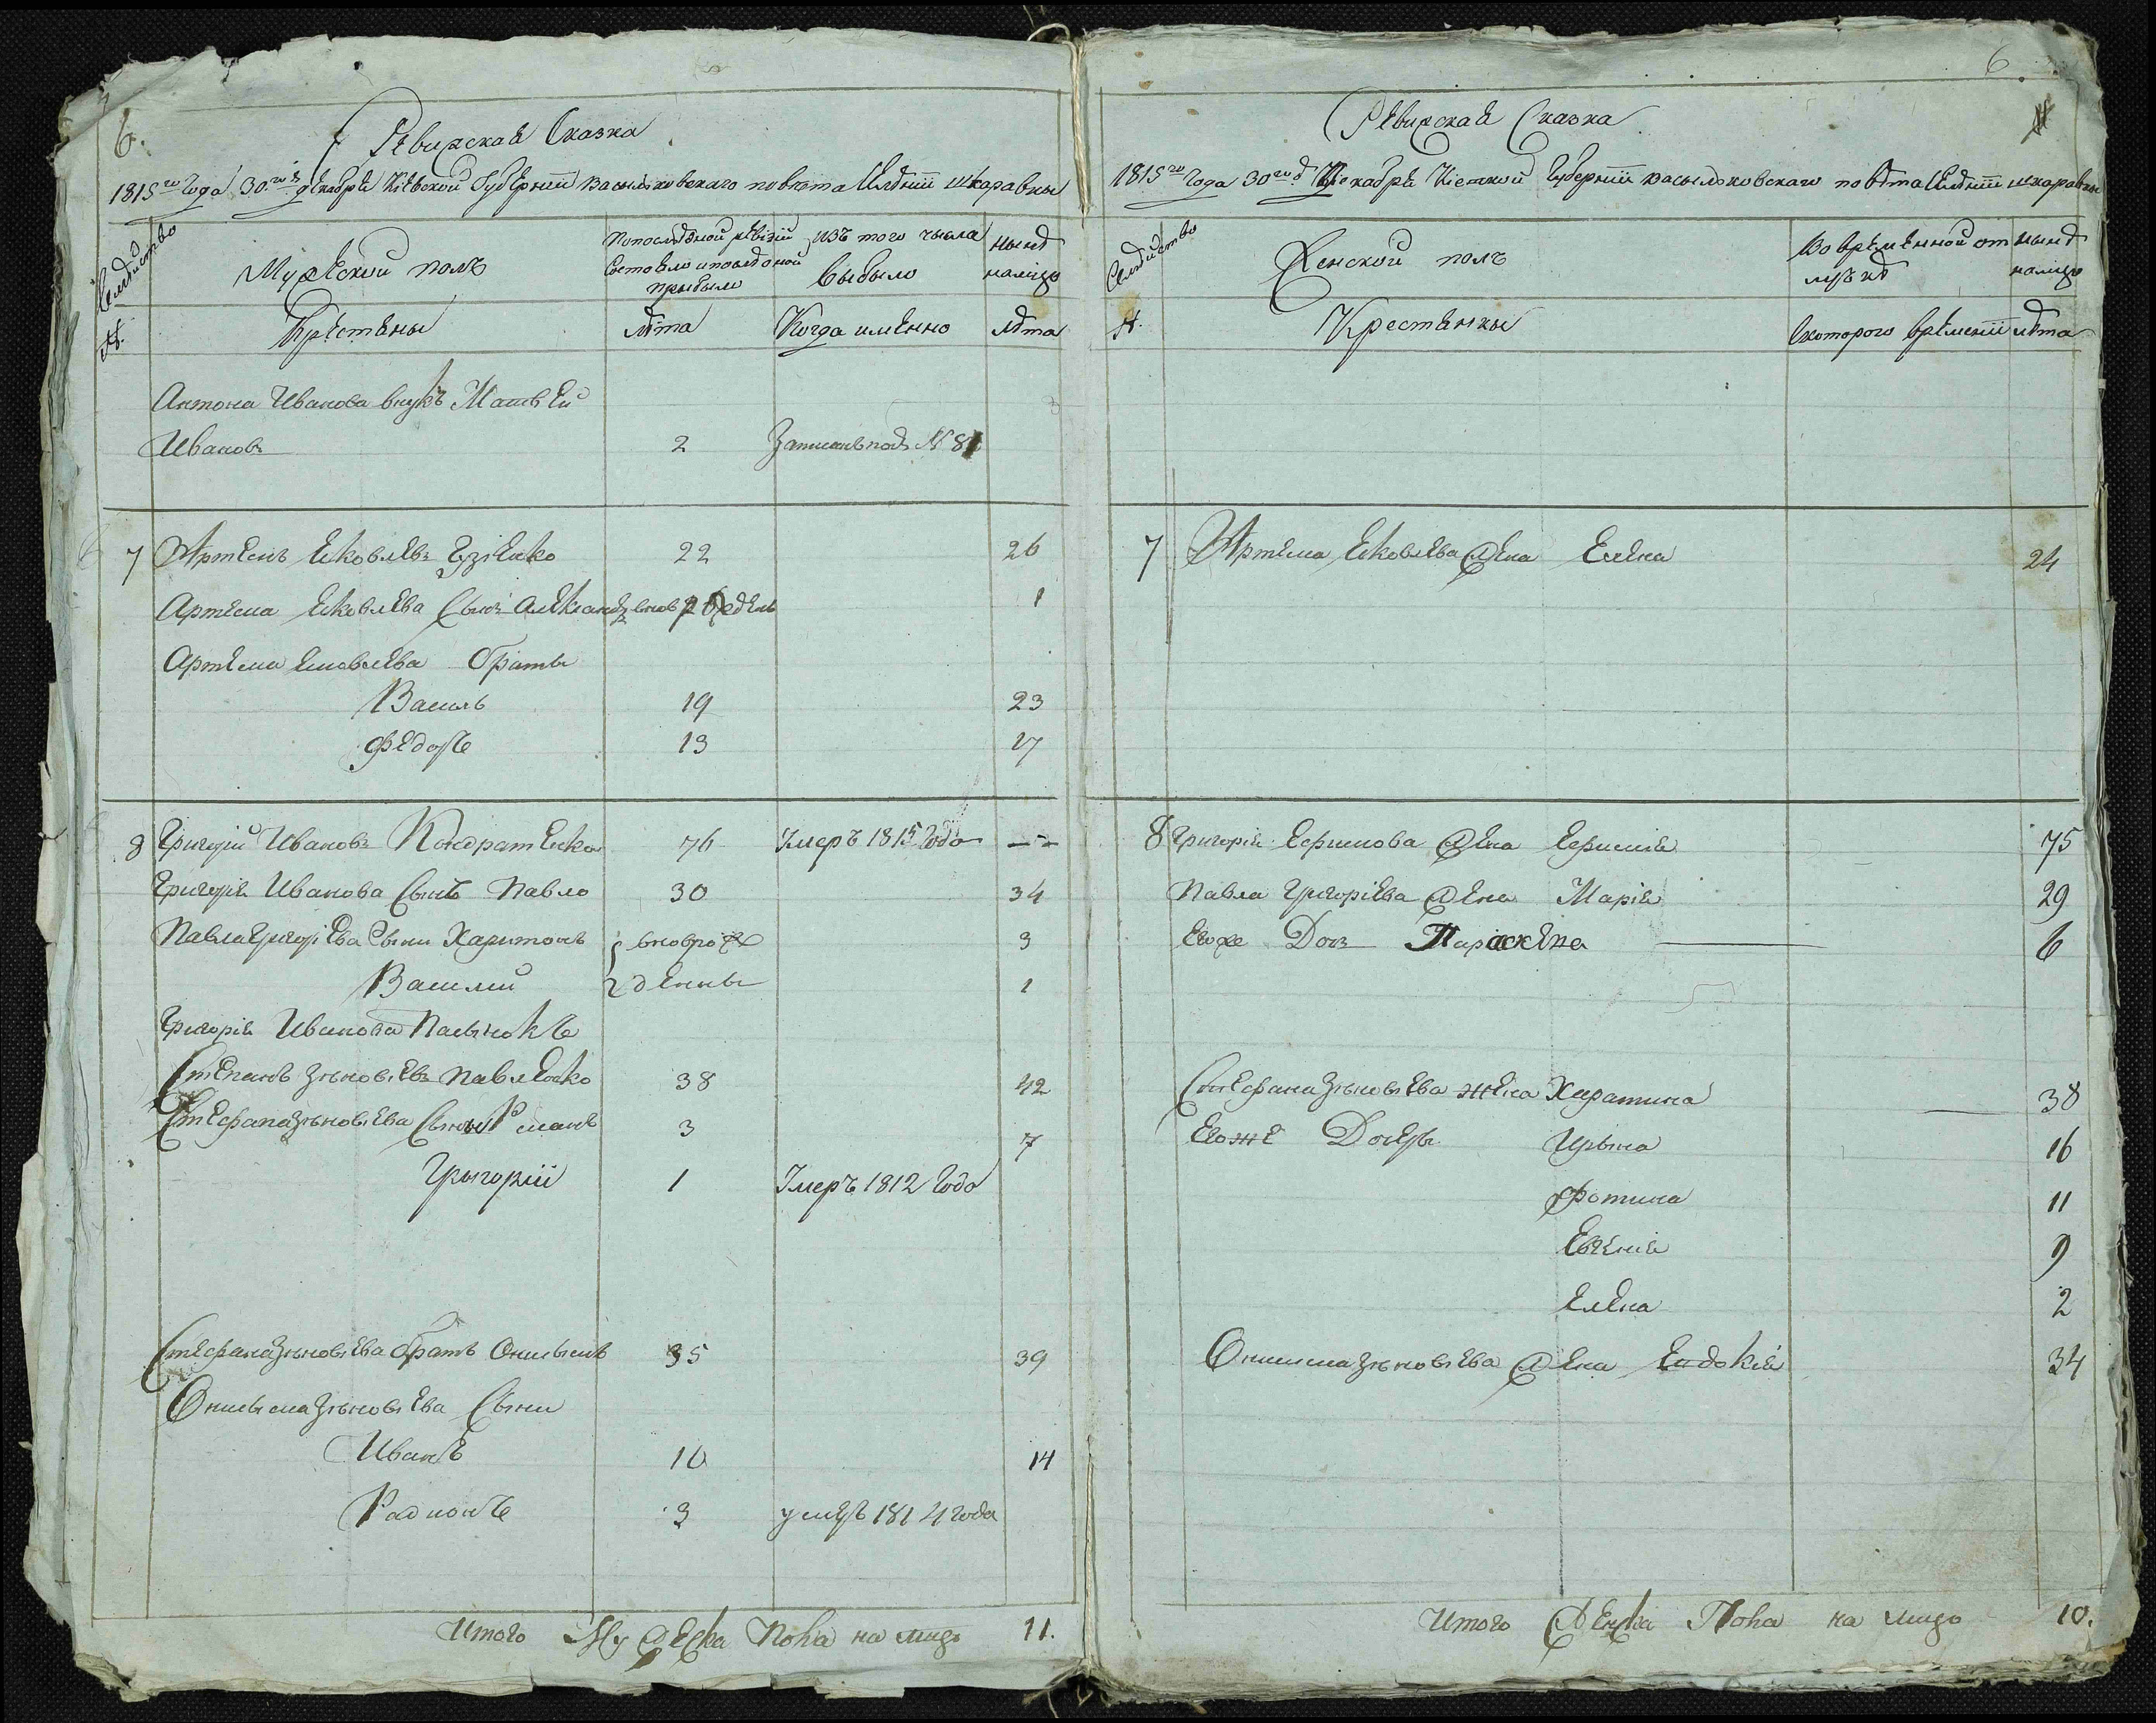 6.
Ревизская Сказка
1815го Года 30го Декабря Кіевской Губерніи Васильковскаго повѣта Селѣнія Шкаравки
Семѣйство
Мужеской полъ
Попослѣдной рѣвізіи состояло ипослѣдоной прыбыло
изъ того чысла выбыло
нынѣ налицо
№.
Крѣстяны
лѣта
Когда имянно
лѣта
Антона Иванова внукъ Матвѣй
Ивановъ 2 Записанъ подъ № 81
7 Артемъ Яковлевъ Гузіенко 22 26
Артема Яковлева Сынъ Александръ вновь рожденъ 1
Артема Яковлева браты
Василь 19 23
Федоръ 13 17
8 Григорій Ивановъ Кондратенко 76 Умеръ 1815 Года --
Григорія Иванова Сынъ Павло 30 34
Павла Григоріева Сыни Харитонъ вноврож 3
Василий денны 1
Григорія Иванова Пасынокъ
Степанъ Зѣновіевъ Павленко 38 42
Стефана Зѣновіева Сыны Романъ 3 7
Грыгорій 1 Умеръ 1812 Года
Стефана Зѣновіева братъ Онисымъ 35 39
Онисыма Зѣновіева Сыни
Иванъ 10 14
Радионъ 3 умеръ 1814 года
Итого Мужеска Пола на лицо 11.
6.
Ревизская Сказка
1815го Года 30го Декабря Кіевской Губерніи Васыльковскаго повѣта Селѣніи Шкаравки
Семѣйство
Женской полъ
Во врѣмѣнной отлучкѣ
нынѣ налицо
№.
Крестянки
Скоторого врѣменіи
лѣта
7 Артема Яковлева Жена Елена 24
8 Григорія Ефимова Жена Ефимія 75
Павла Григоріева Жена Марія 29
Егоже Дочь Параскева 6
Стефана Зѣновіева жена Харатина 38
Егоже Дочеры Ирына 16
Фотина 11
Евгенія 9
Елена 2
Онисима Зѣновіева Жена Евдокія 34
Итого Женска Пола на лицо 10.